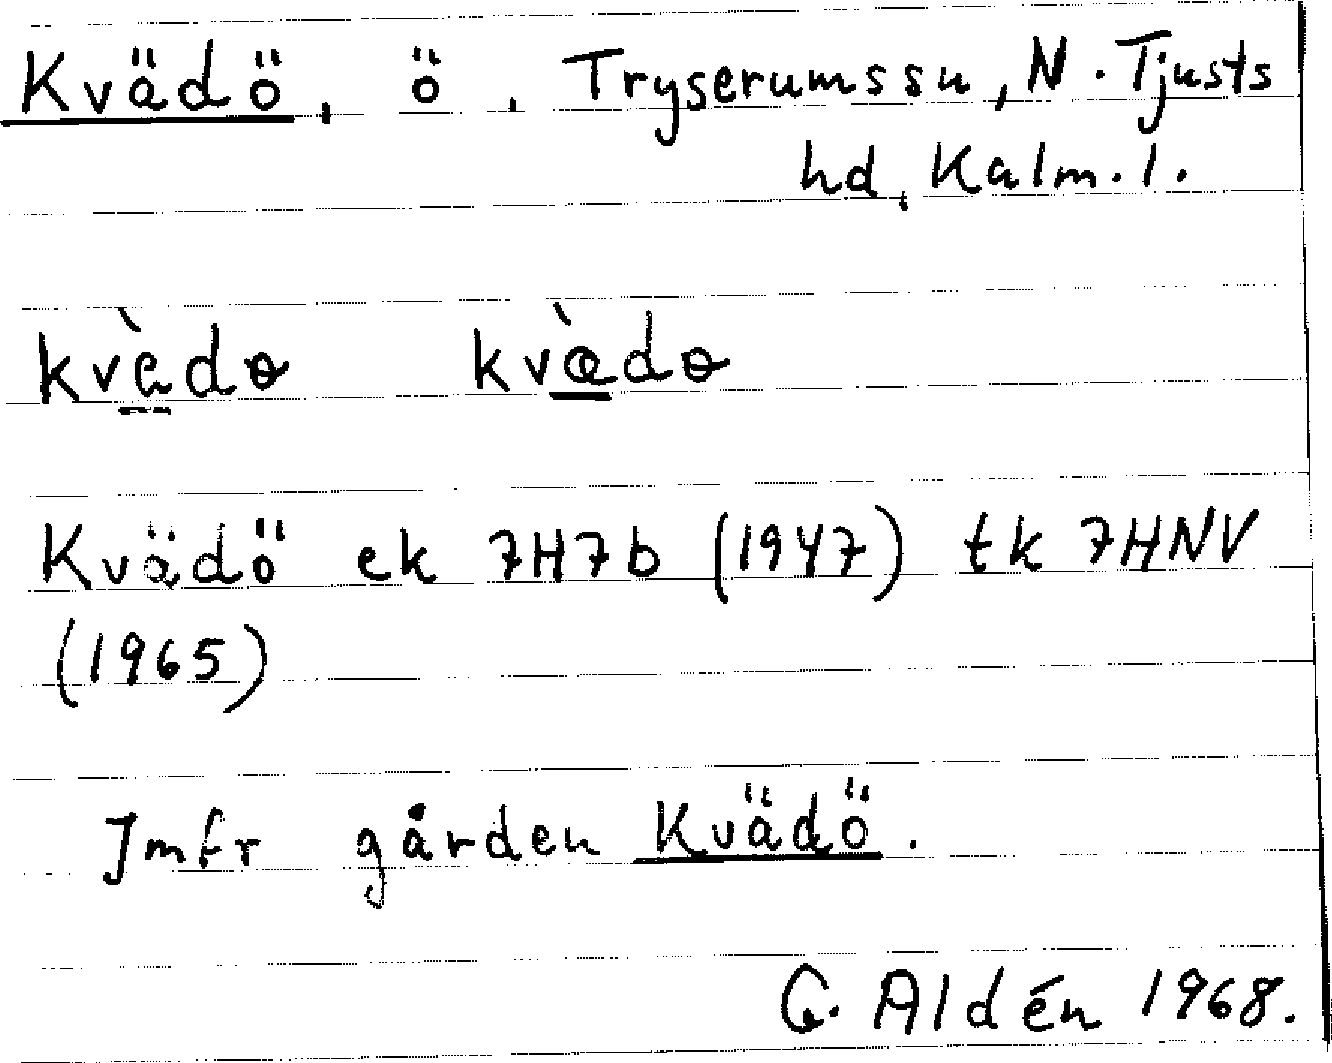 Kvädö, ö, Tryserums sn, N. Tjusts
hd, Kalm. l.
kvàdɵ kvæ̀dɵ
Kvädö ek 7H7b (1947) tk 7HNV
(1965)
Jmfr gården Kvädö.
G. Aldén 1968.